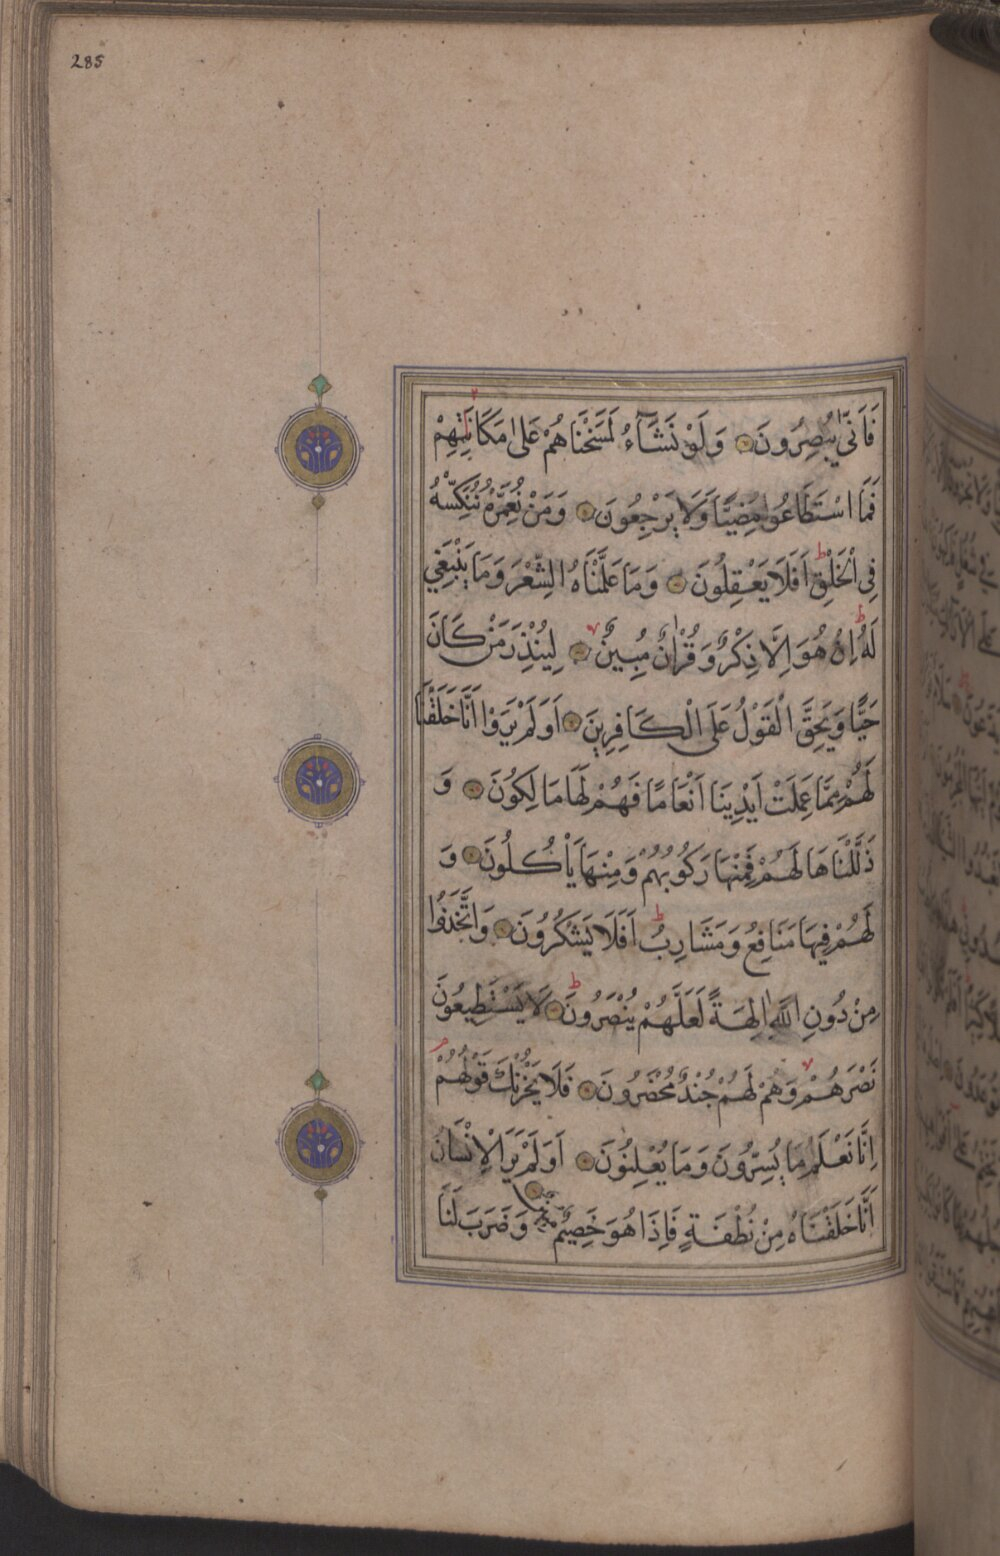 285
فَاَنّٰى يُبْصِرُونَ وَلَوْ نَشَآءُ لَمَسَخْنَاهُمْ عَلٰى مَكَانَتِهِمْ
فَمَا اسْتَطَاعُوا مُضِيًّا وَلَا يَرْجِعُونَ وَمَنْ نُعَمِّرْهُ نُنَكِّسْهُ
فِى الْخَلْقِ اَفَلَا يَعْقِلُونَ وَمَا عَلَّمْنَاهُ الشِّعْرَ وَمَا يَنْبَغِى
لَهُ اِنْ هُوَ اِلَّا ذِكْرٌ وَقُرْاٰنٌ مُبِينٌ لِيُنْذِرَ مَنْ كَانَ
حَيًّا وَيَحِقَّ الْقَوْلُ عَلَى الْكَافِرِينَ اَوَلَمْ يَرَوْا اَنَّا خَلَقْنَا
لَهُمْ مِمَّا عَمِلَتْ اَيْدِينَا اَنْعَامًا فَهُمْ لَهَا مَالِكُونَ وَ
ذَلَّلْنَاهَا لَهُمْ فَمِنْهَا رَكُوبُهُمْ وَمِنْهَا يَاْكُلُونَ وَ
لَهُمْ فِيهَا مَنَافِعُ وَمَشَارِبُ اَفَلَا يَشْكُرُونَ وَاتَّخَذُوا
مِنْ دُونِ اللّٰهِ اٰلِهَةً لَعَلَّهُمْ يُنْصَرُونَ لَا يَسْتَطِيعُونَ
نَصْرَهُمْ وَهُمْ لَهُمْ جُنْدٌ مُحْضَرُونَ فَلَا يَحْزُنْكَ قَوْلُهُمْ
اِنَّا نَعْلَمُ مَا يُسِرُّونَ وَمَا يُعْلِنُونَ اَوَلَمْ يَرَ الْاِنْسَانُ
اَنَّا خَلَقْنَاهُ مِنْ نُطْفَةٍ فَاِذَا هُوَ خَصِيمٌ مُبِينٌ وَضَرَبَ لَنَا